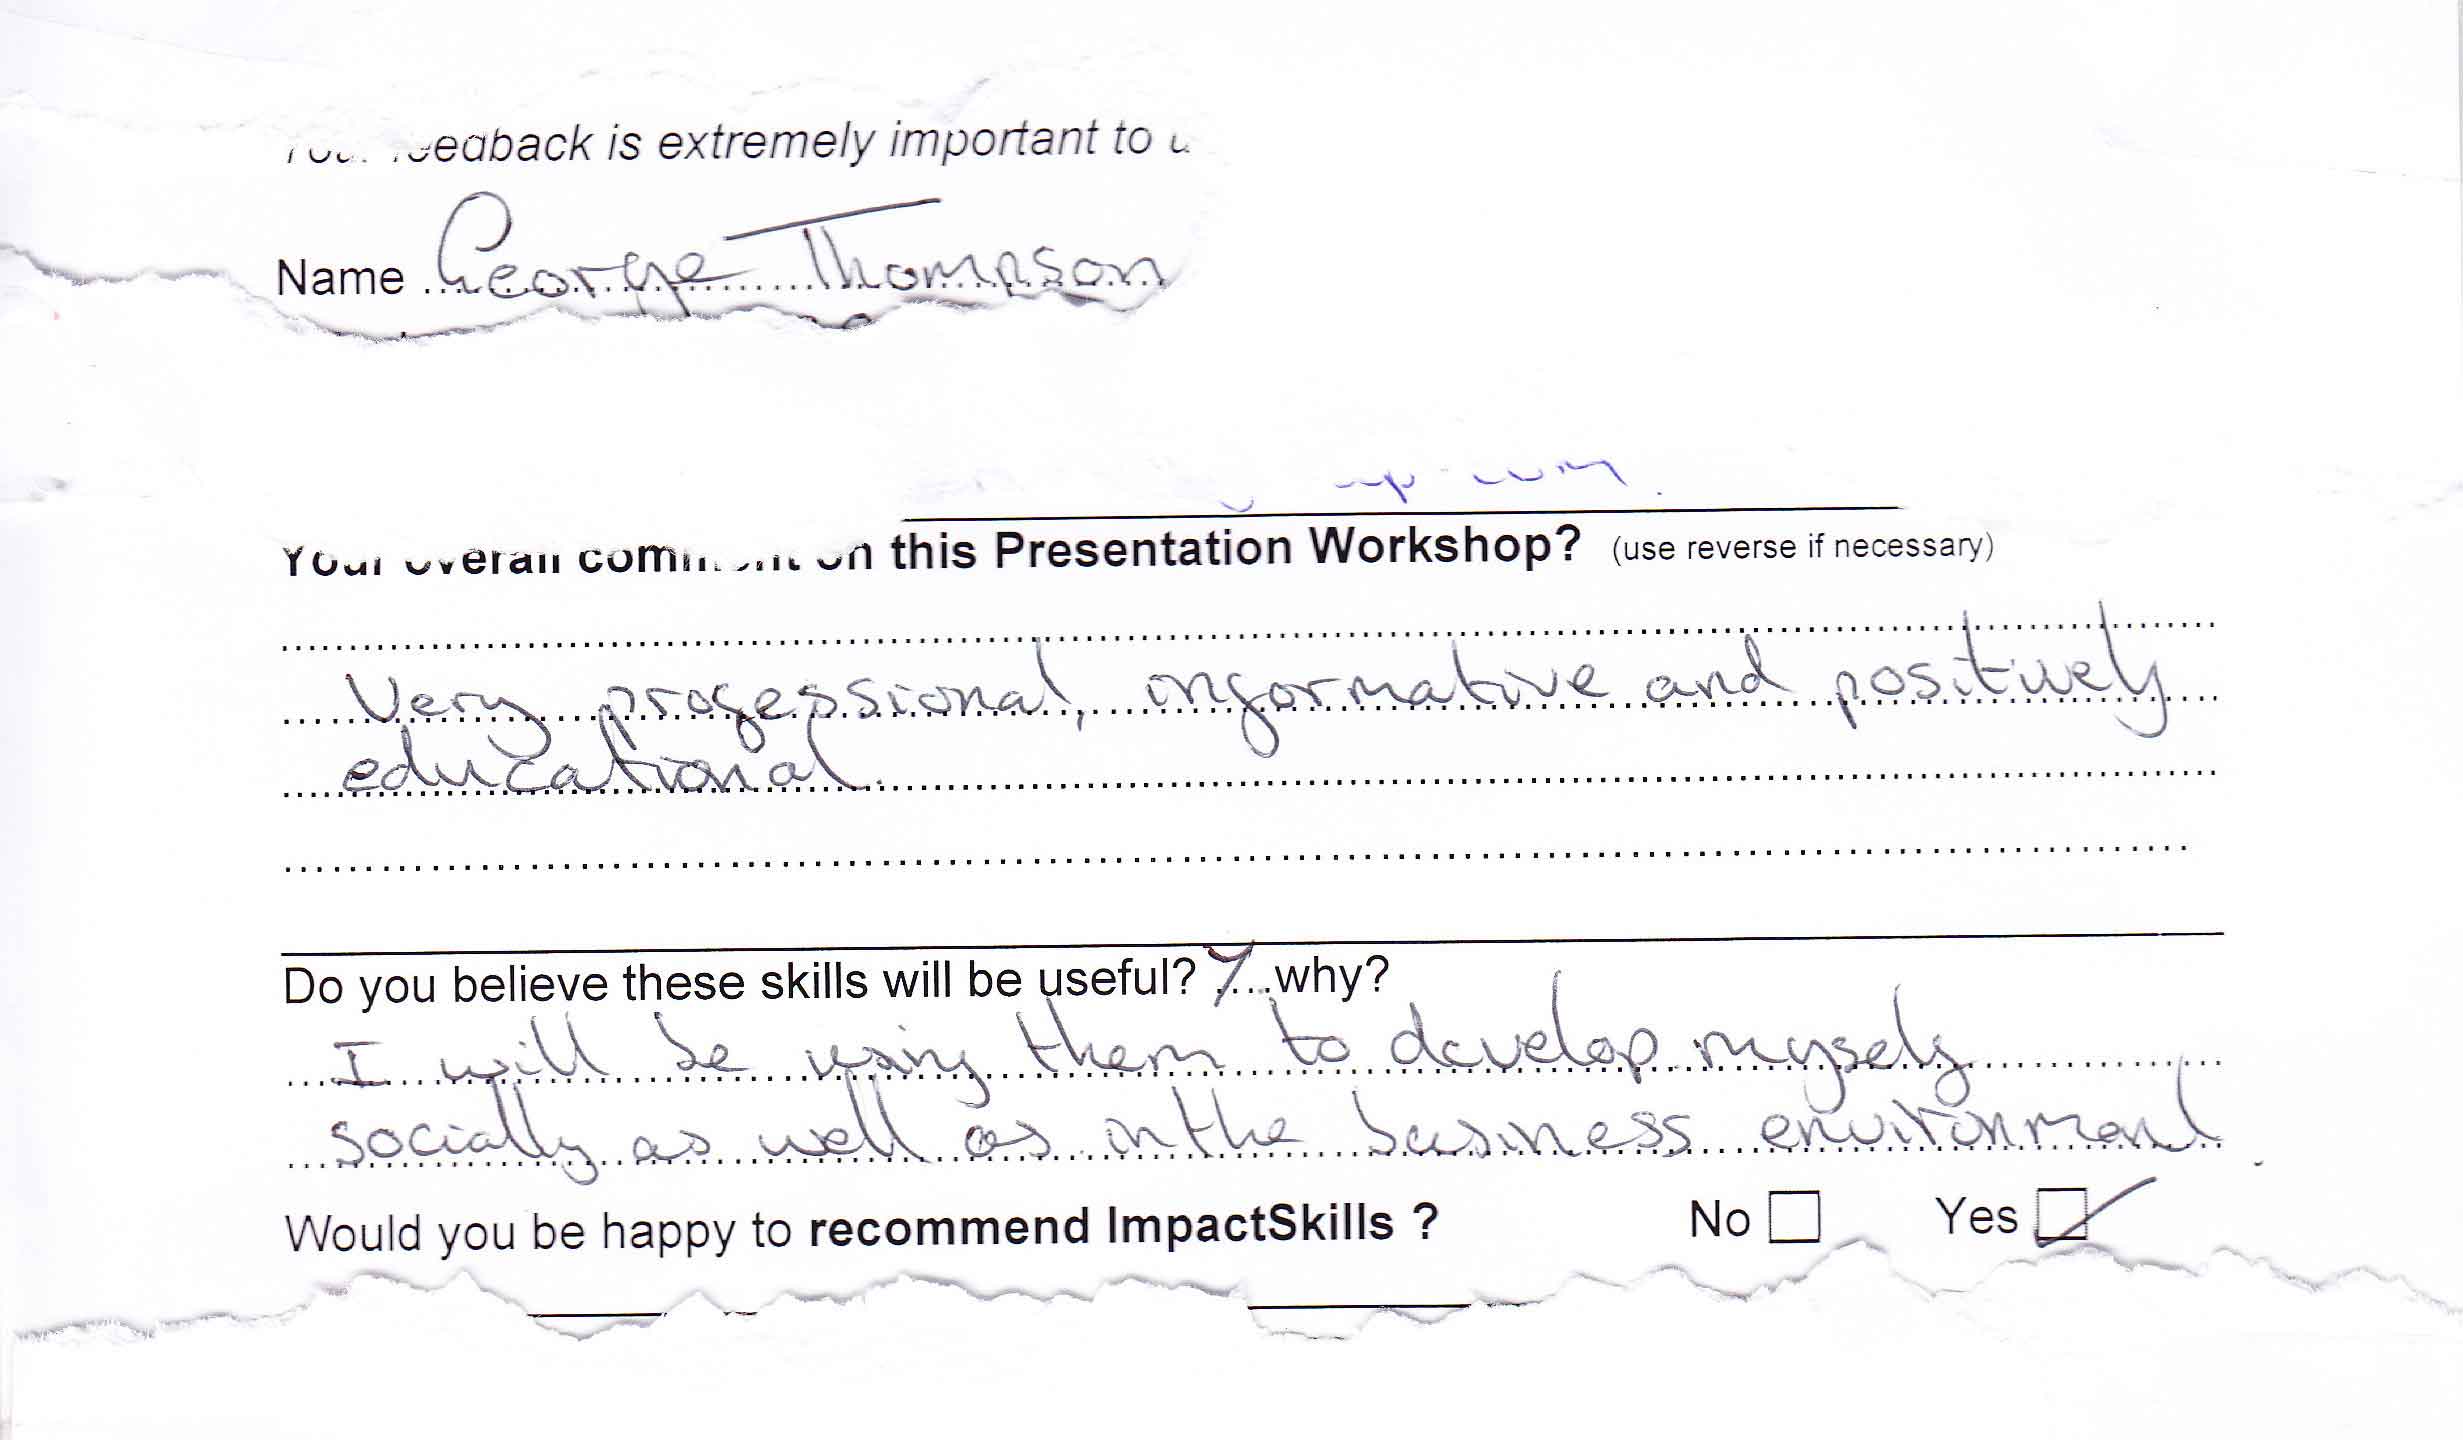 Your feedback is extremely important to
Name George Thompson
Your overall comment on this Presentation Workshop? (use reverse if necessary)
Very professional, informative and positively
educational.
Do you believe these skills will be useful? Y why?
I will be using them to develop myself
socially as well as in the business environment.
Would you be happy to recommend ImpactSkills ? No Yes